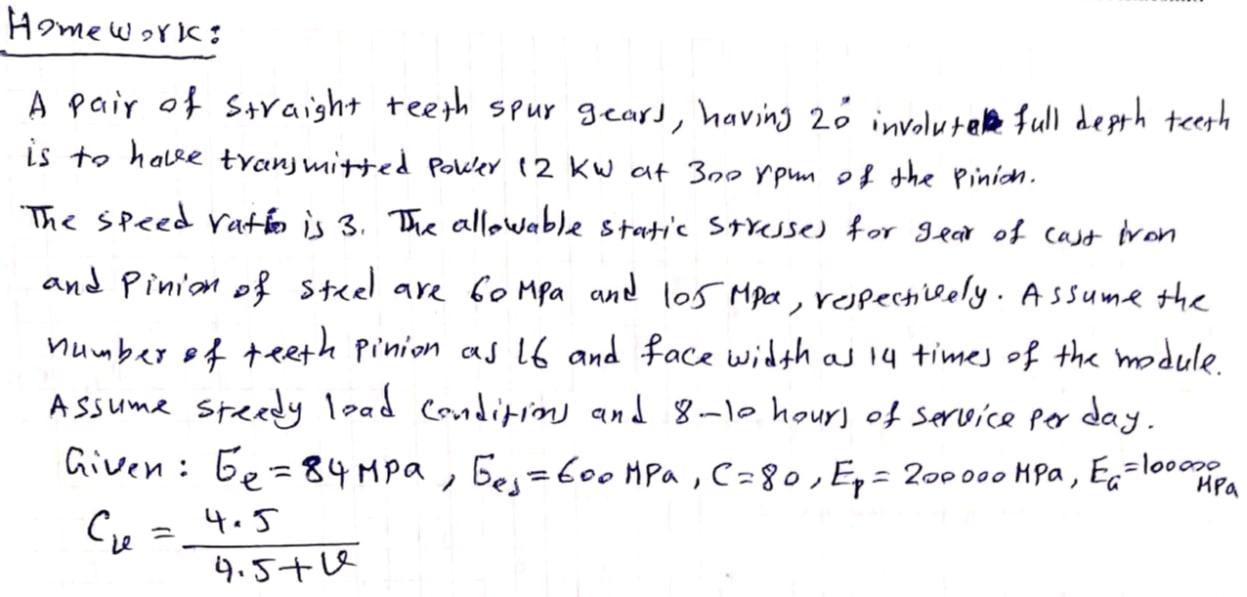 Homework:
A pair of straight teeth spur gears, having 20° involute full depth teeth
is to have transmitted Power 12 KW at 300 rpm of the Pinion.
The speed ratio is 3. The allowable static stresses for gear of cast iron
and Pinion of steel are 60 MPa and 105 MPa, respectively. Assume the
number of teeth Pinion as 16 and face width as 14 times of the module.
Assume steady load conditions and 8-10 hours of service per day.
Given: σe = 84 MPa, σes = 600 MPa, C = 80, Ep = 200000 MPa, EG = 100000 MPa
Cv = 4.5
4.5 + v